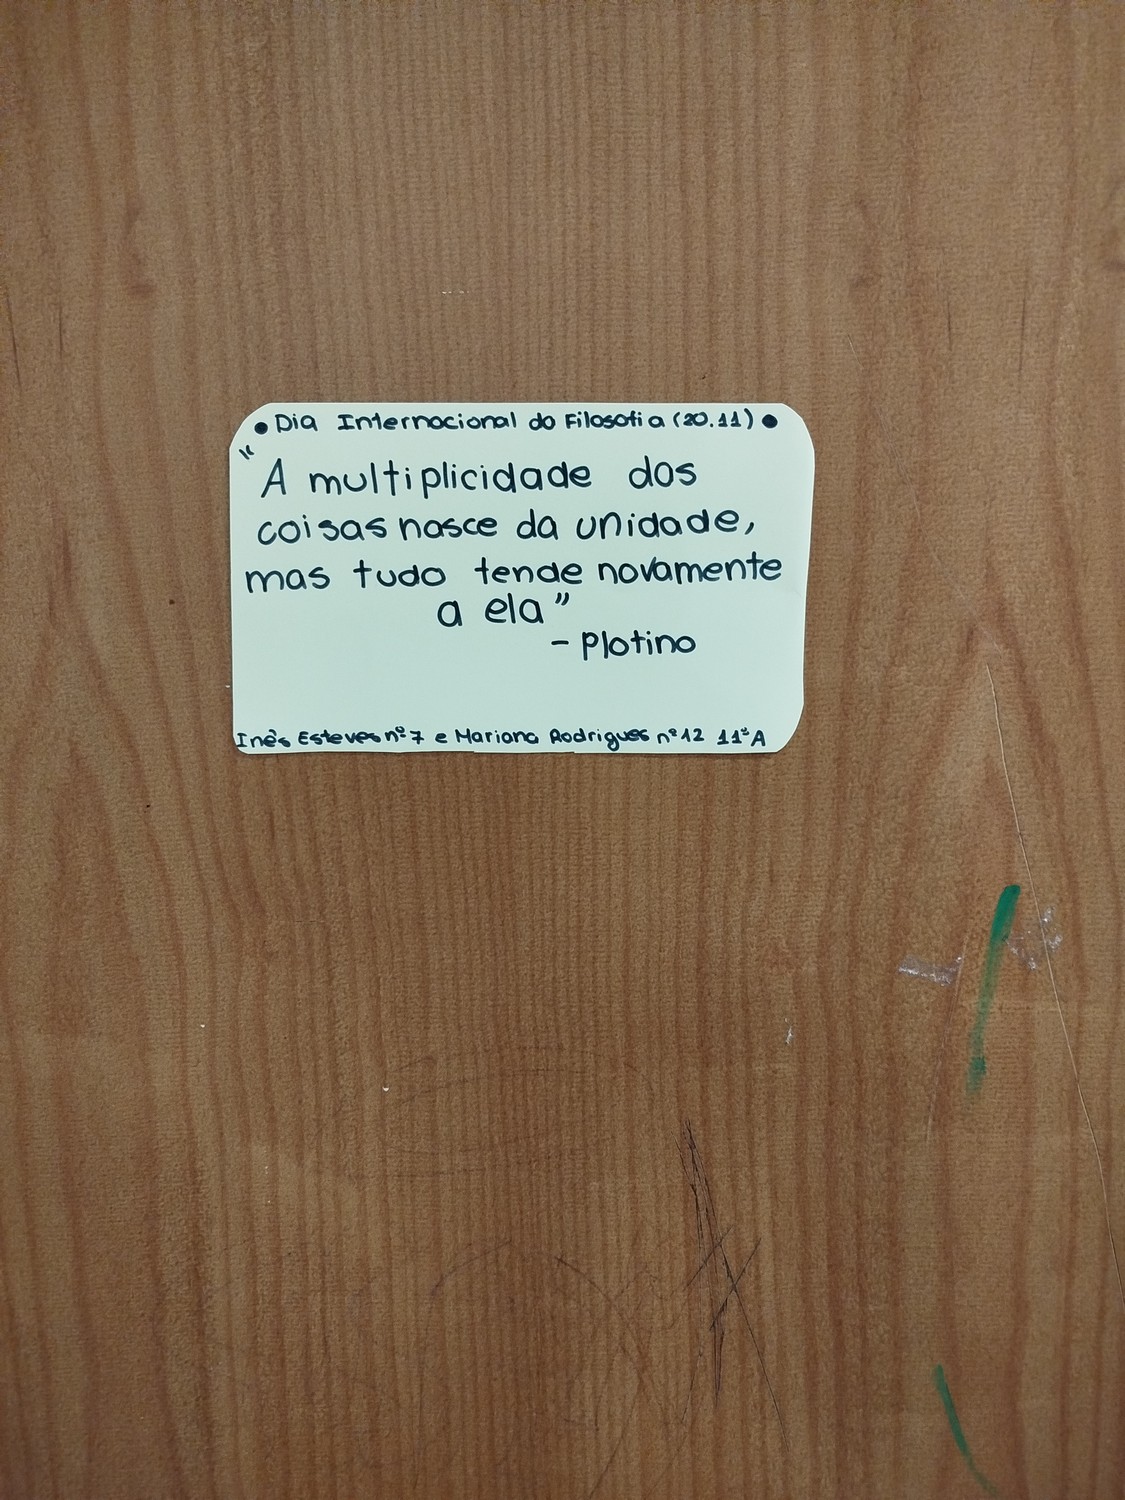 • Dia Internacional da Filosofia (20.11) •
"A multiplicidade das
coisas nasce da unidade,
mas tudo tende novamente
a ela"
- Plotino
Inês Esteves nº7 e Mariana Rodrigues nº12 11ºA